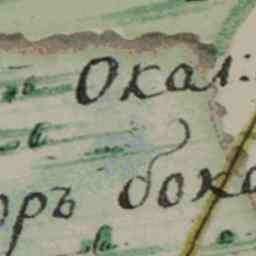 Окал:
оръ боко